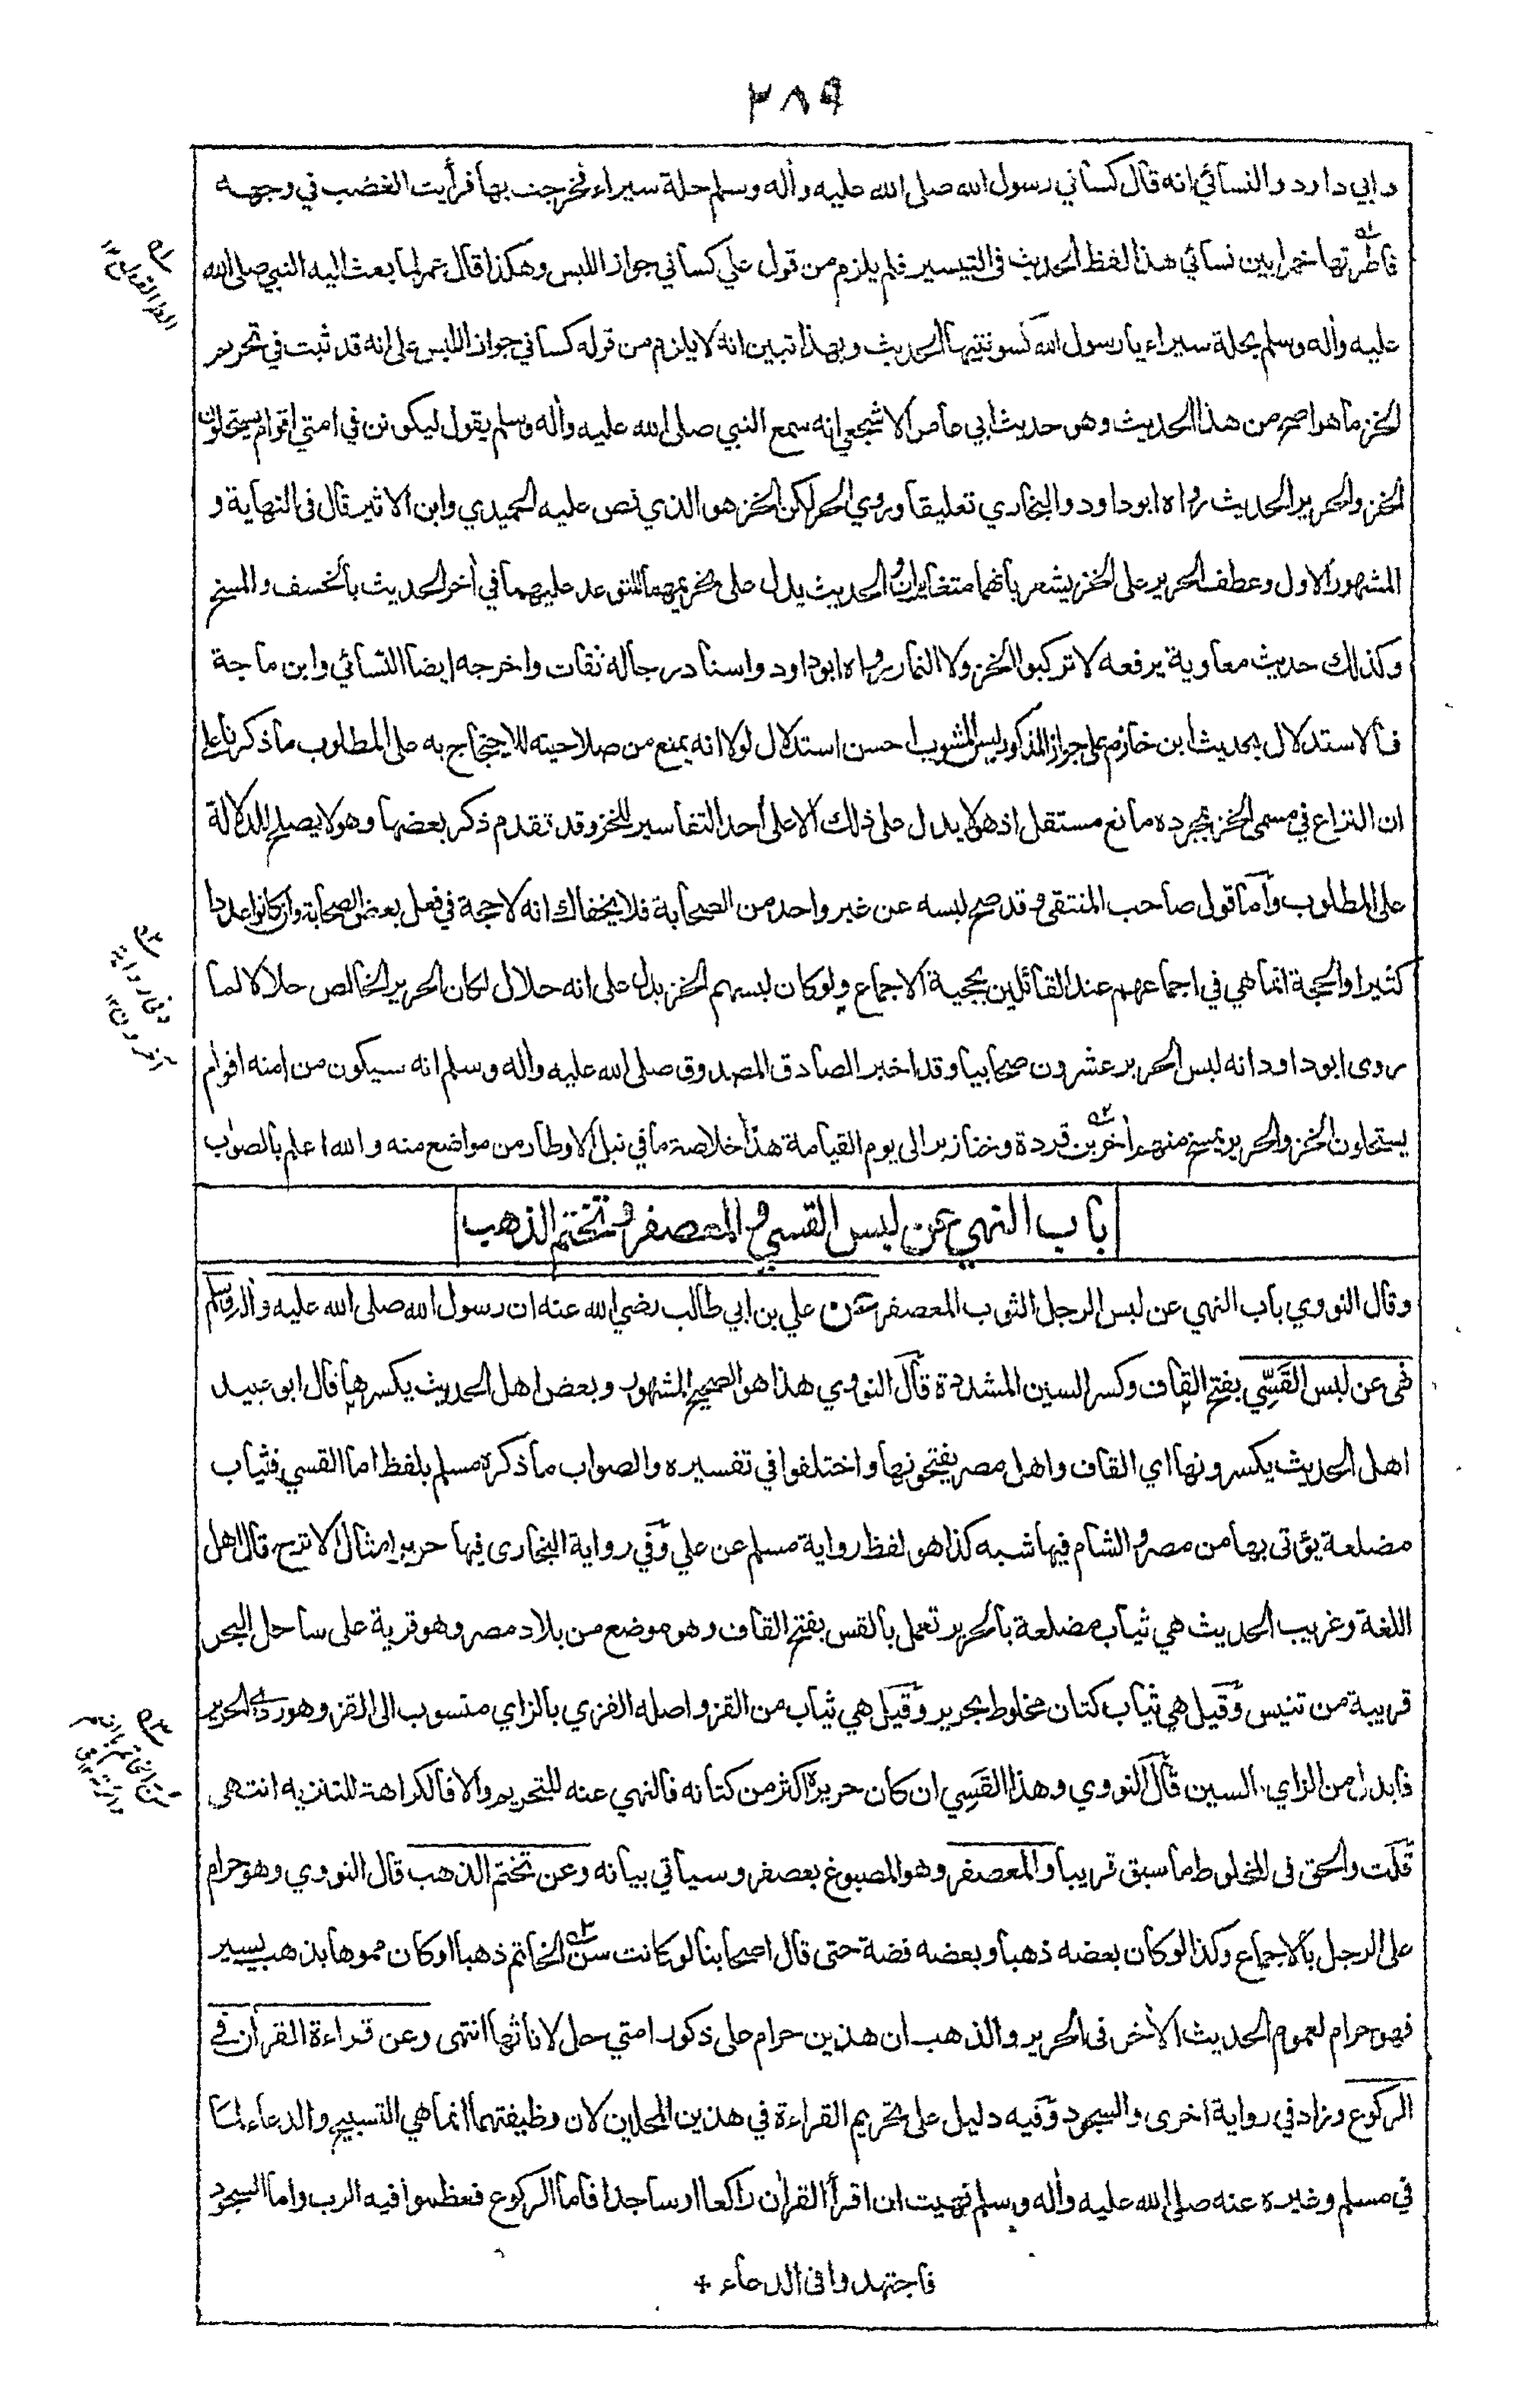 ٣٨٩
وابي داود والنسائي انه قال كساني رسول الله صلى الله عليه وأله وسلم حلة سيراء فخرجت بها فرأيت الغضب في وجهه
فاطرتها خمرا بين نسائي هذا لفظ الحديث فى التيسير فلم يلزم من قول علي كساني جواز اللبس وهكذا قال عمر لما بعث اليه النبي صلى الله
عليه وأله وسلم بحلة سيراء يا رسول الله كسوتنيها الحديث وبهذا تبين انه لا يلزم من قوله كساني جواز اللبس على انه قد ثبت في تحريم
الخز ما هو اصح من هذا الحديث وهو حديث ابي عامر الاشجعي انه سمع النبي صلى الله عليه وأله وسلم يقول ليكونن في امتي اقوام يستحلون
الخز والحرير الحديث رواه ابوداود والبخاري تعليقا وروي الحر لكن الخز هو الذي نص عليه الحميدي وابن الاثير قال فى النهاية و
المشهور الاول وعطف الحرير على الخز يشعر بانهما متغايران والحديث يدل على تحريمهما للتوعد عليهما في أخر الحديث بالخسف والمسخ
وكذلك حديث معاوية يرفعه لا تركبوا الخز ولا النمار رواه ابوداود واسناد رجاله ثقات واخرجه ايضا النسائي وابن ماجة
فالاستدلال بحديث ابن خازم على جواز المذكور لبس المشوب احسن استدلال لولا انه يمنع من صلاحيته للاحتجاج به على المطلوب ما ذكرنا على
ان النزاع في مسمى الخز بمجرده مانع مستقل اذ هو لا يدل على ذلك الا على احد التفاسير للخز وقد تقدم ذكر بعضها وهو لا يصلح للدلالة
على المطلوب وأما قول صاحب المنتقى وقد صح لبسه عن غير واحد من الصحابة فلا يخفاك انه لا حجة في فعل بعض الصحابة وان كانوا عددا
كثيرا والحجة انما هي في اجماعهم عند القائلين بحجية الاجماع ولو كان لبسهم الخز يدل على انه حلال لكان الحرير الخالص حلالا لما
روى ابوداود انه لبس الحرير عشرون صحابيا وقد اخبر الصادق المصدوق صلى الله عليه وأله وسلم انه سيكون من امته اقوام
يستحلون الخز والحرير يمسخ منهم أخرين قردة وخنازير الى يوم القيامة هذا خلاصة ما في نيل الاوطار من مواضع منه والله اعلم بالصواب
باب النهي عن لبس القسي والمعصفر وتختم الذهب
وقال النووي باب النهي عن لبس الرجل الثوب المعصفر عن علي بن ابي طالب رضي الله عنه ان رسول الله صلى الله عليه وأله وسلم
نهى عن لبس القَسِّي بفتح القاف وكسر السين المشددة قال النووي هذا هو الصحيح المشهور وبعض اهل الحديث يكسرها قال ابو عبيد
اهل الحديث يكسرونها اي القاف واهل مصر يفتحونها واختلفوا في تفسيره والصواب ما ذكره مسلم بلفظ اما القسي فثياب
مضلعة يؤتى بها من مصر والشام فيها شبه كذا هو لفظ رواية مسلم عن علي وفي رواية البخارى فيها حرير امثال الاترج قال اهل
اللغة وغريب الحديث هي ثياب مضلعة بالحرير تعمل بالقس بفتح القاف وهو موضع من بلاد مصر وهو قرية على ساحل البحر
قريبة من تنيس وقيل هي ثياب كتان مخلوط بحرير وقيل هي ثياب من القز واصله القزي بالزاي منسوب الى القز وهو ردئ الحرير
فابدل من الزاي السين قال النووي وهذا القَسِي ان كان حريره اكثر من كتانه فالنهي عنه للتحريم والا فالكراهة للتنزيه انتهى
قلت والحق فى المخلوط ما سبق قريبا والمعصفر وهو المصبوغ بعصفر وسياتي بيانه وعن تختم الذهب قال النووي وهو حرام
على الرجل بالاجماع وكذا لو كان بعضه ذهبا وبعضه فضة حتى قال اصحابنا لو كانت سن الخاتم ذهبا او كان مموها بذهب يسير
فهو حرام لعموم الحديث الأخر فى الحرير والذهب ان هذين حرام على ذكور امتي حل لاناثها انتهى وعن قراءة القرأن في
الركوع وزاد في رواية اخرى والسجود وفيه دليل على تحريم القراءة في هذين المحلين لان وظيفتهما انما هي التسبيح والدعاء لما
في مسلم وغيره عنه صلى الله عليه وأله وسلم نهيت ان اقرأ القرأن راكعا او ساجدا فاما الركوع فعظموا فيه الرب واما السجود
فاجتهدوا فى الدعاء +